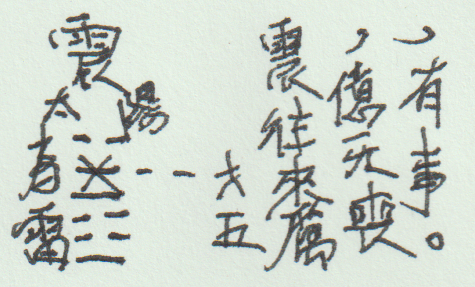 震
太陽
春雷
六五
震往來厲
，億无喪
，有事。